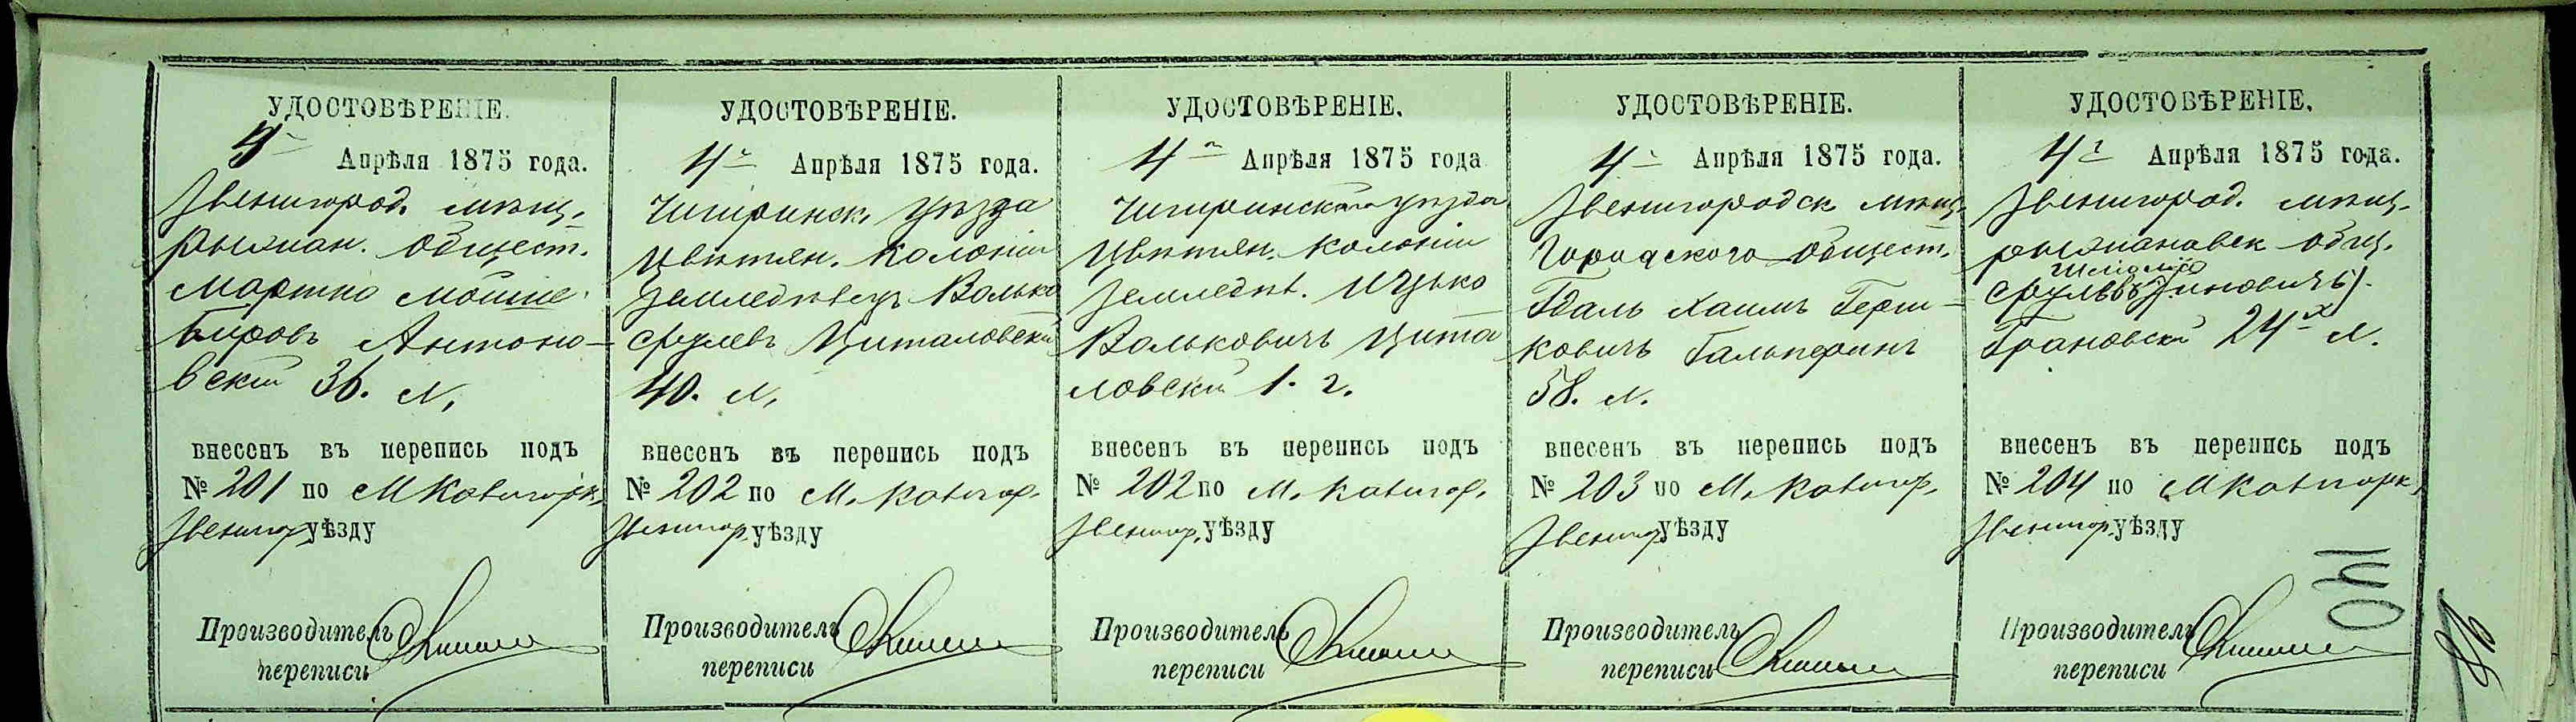 УДОСТОВѢРЕНІЕ.
4го Апрѣля 1875 года.
Звенигород. мѣщ.
рыжан. общест.
Мортко Мошке
Бировъ Антоно-
вскій 36. л.
внесенъ въ перепись подъ
№ 201 по М Катигорк.
Звенигор. уѣзду
Производитель
переписи
УДОСТОВѢРЕНІЕ.
4го Апрѣля 1875 года.
Чигиринск. уѣзда
Цвѣтян. колоніи
Земледѣлецъ Волько
Срулевъ Циталовскій
40. л.
внесенъ въ перепись подъ
№ 202 по М. Катигор.
Звенигор. уѣзду
Производитель
переписи
УДОСТОВѢРЕНІЕ.
4го Апрѣля 1875 года
Чигиринскаго уѣзда
Цвѣтян. колоніи
Земледѣл. Ицько
Вольковичъ Цита
ловскій 1. г.
внесенъ въ перепись подъ
№ 202 по М. Катигор.
Звенигор. уѣзду
Производитель
переписи
УДОСТОВѢРЕНІЕ.
4го Апрѣля 1875 года.
Звенигородск мѣщ.
Городскаго общест.
Гдаль Хаимъ Герш-
ковичъ Гальперинъ
58. л.
внесенъ въ перепись подъ
№ 203 по М. Катигор.
Звенигор. уѣзду
Производитель
переписи
УДОСТОВѢРЕНІЕ.
4го Апрѣля 1875 года.
Звенигород. мѣщ.
рыжановск общ.
Шліомо
Срулевъ (Зиновичъ)
Грановскій 24х л.
внесенъ въ перепись подъ
№ 204 по М Катигорк.
Звенигор. уѣзду
Производитель
переписи
140